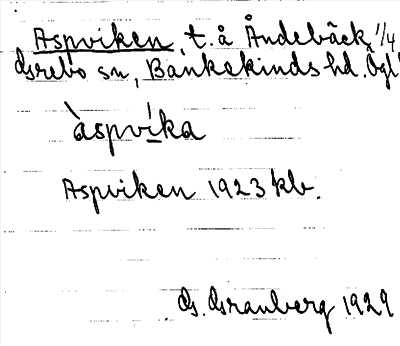 Aspviken, t. å Åndebäck, 1/4
Grebo sn, Bankekinds hd. Ögl
àspvi̠ka
Aspviken 1923 kb.
G. Granberg 1929